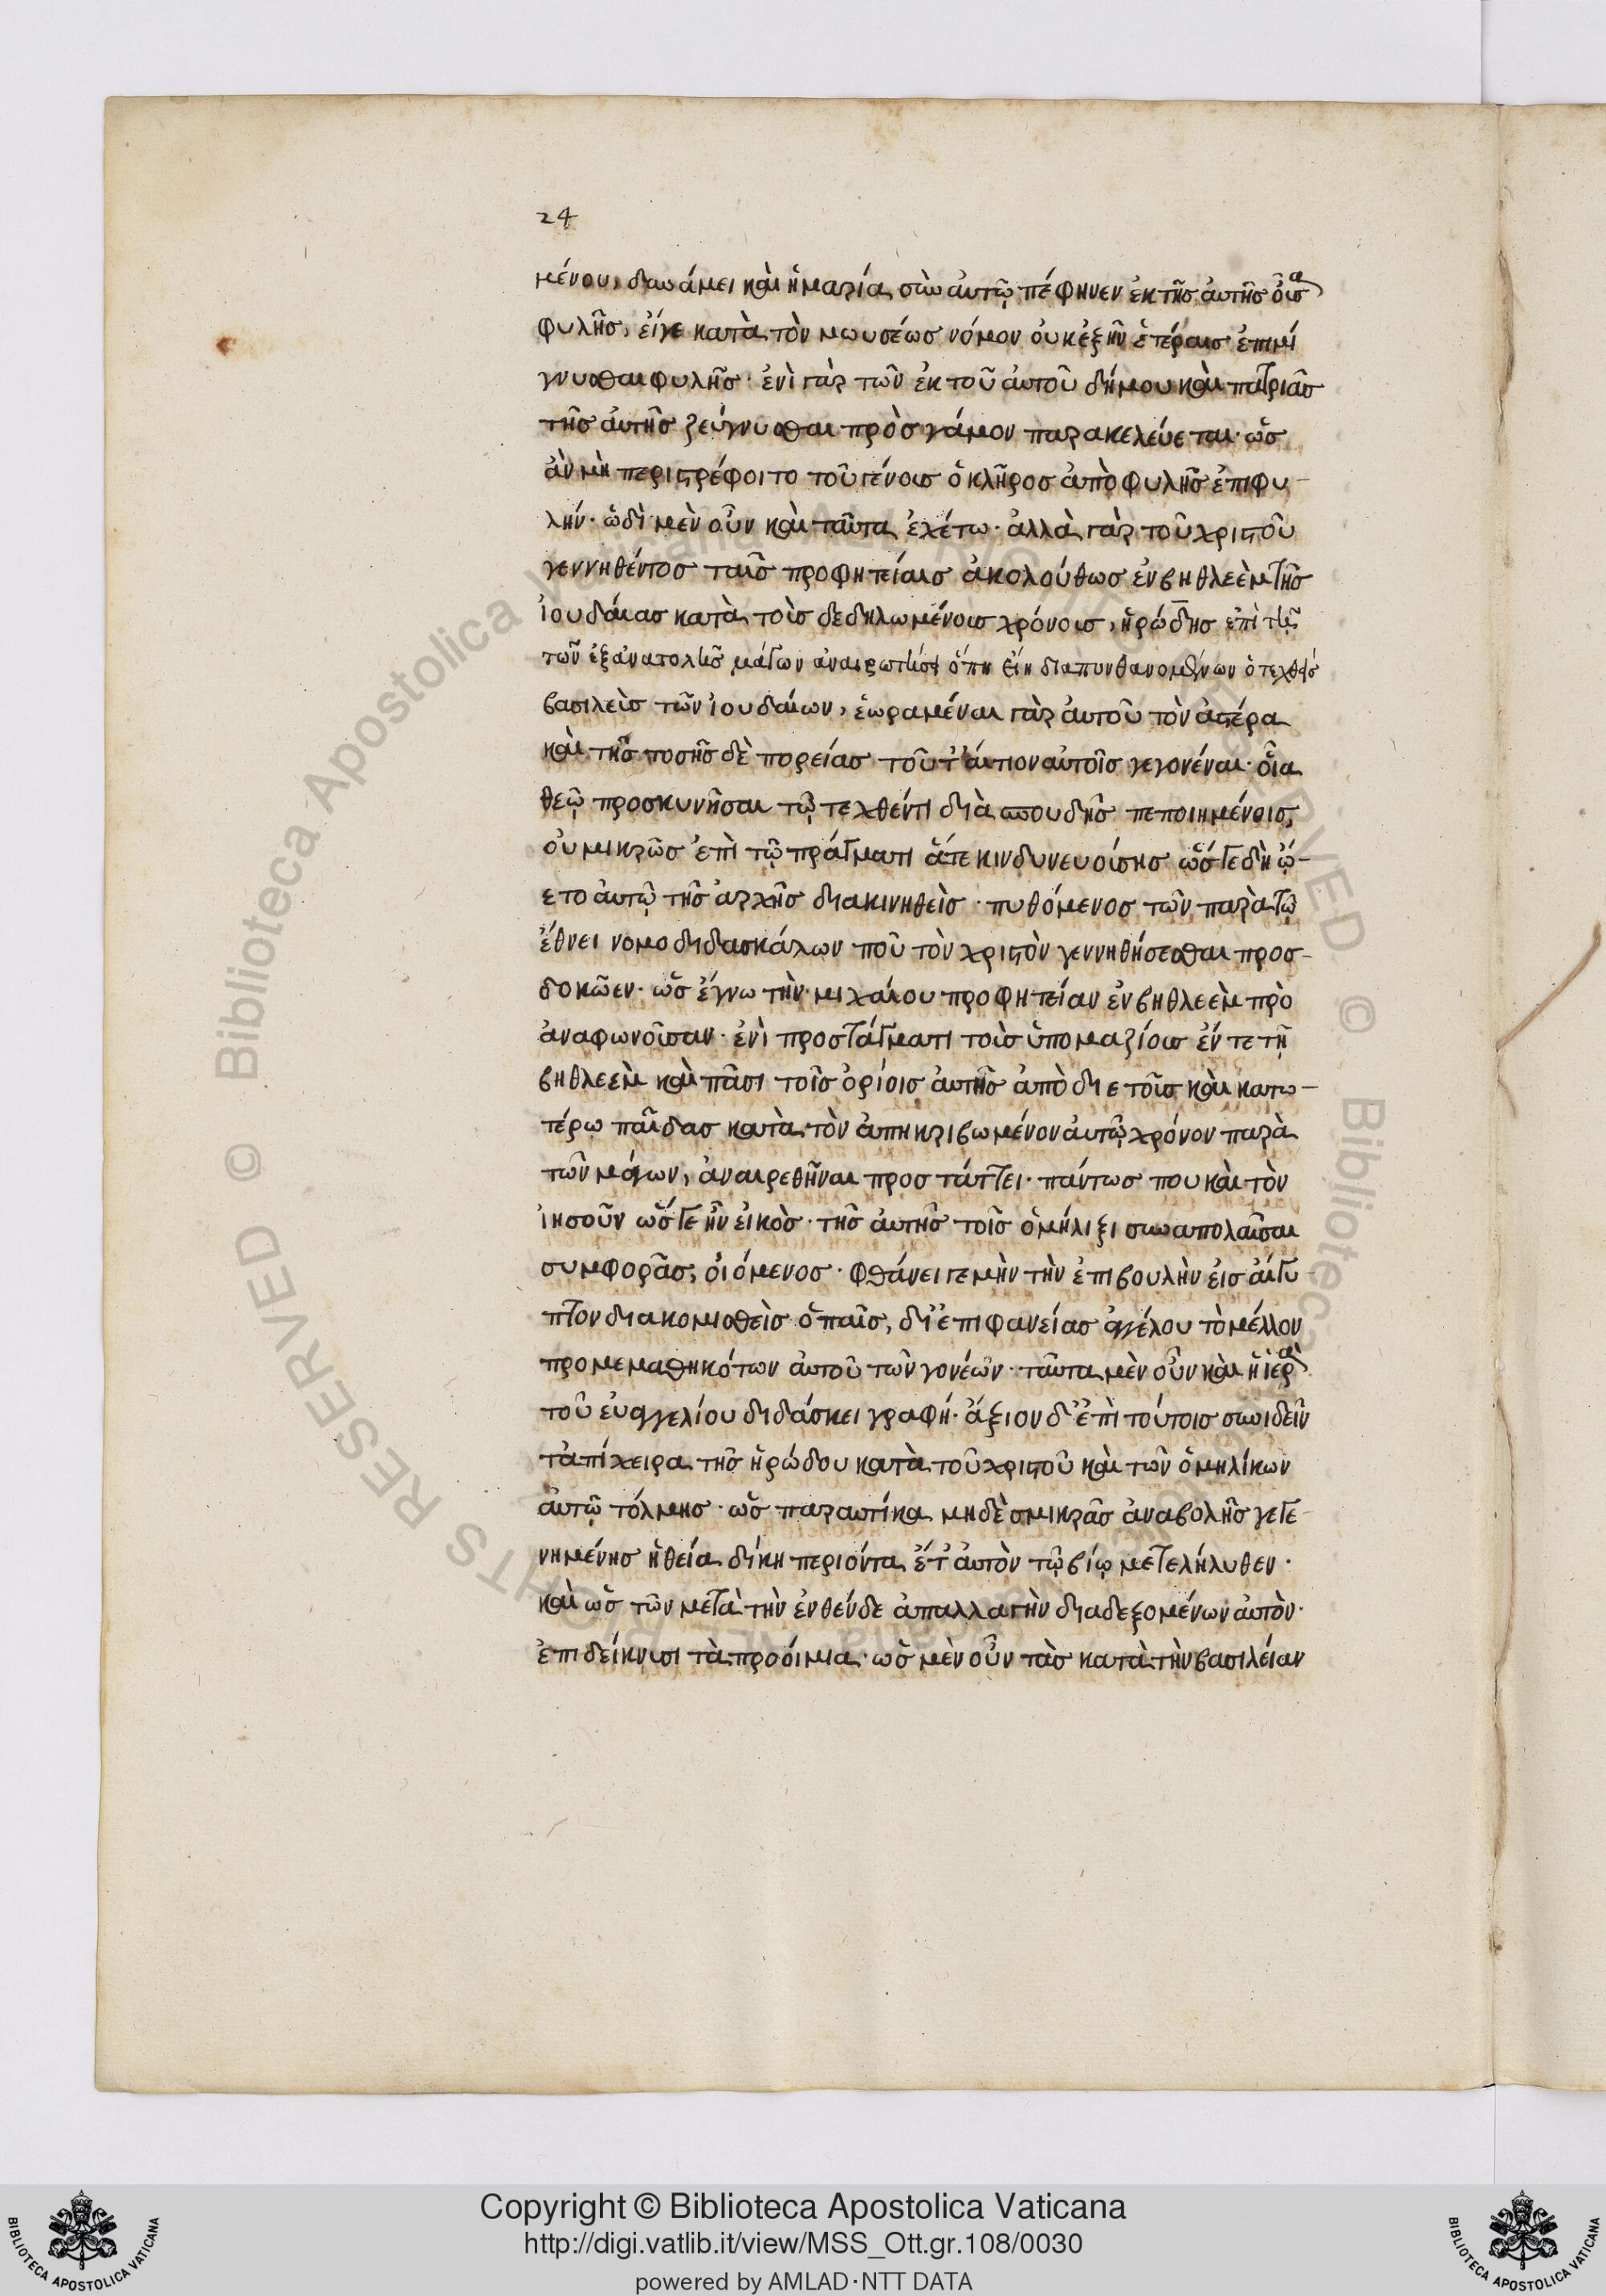 24
μένου, δυνάμει καὶ ἡ μαρία σὺν αὐτῷ πέφηνεν ἐκ τῆς αὐτῆς οὖσα
φυλῆς, εἴγε κατὰ τὸν μωυσέως νόμον οὐκ ἐξῆν ἑτέραις ἐπιμί
γνυσθαι φυλῆς· ἑνὶ γὰρ τῶν ἐκ τοῦ αὐτοῦ δήμου καὶ πατριᾶς
τῆς αὐτῆς ζεύγνυσθαι πρὸς γάμον παρακελεύεται· ὡς
ἂν μὴ περιστρέφοιτο τοῦ γένους ὁ κλῆρος ἀπὸ φυλῆς ἐπὶ φυ-
λήν· ὡδὶ μὲν οὖν καὶ ταῦτα ἐχέτω· ἀλλὰ γὰρ τοῦ χριστοῦ
γεννηθέντος ταῖς προφητείαις ἀκολούθως ἐν βηθλεὲμ τῆς
ἰουδαίας κατὰ τοὺς δεδηλωμένους χρόνους, ἡρώδης ἐπὶ τῇ
τῶν ἐξ ἀνατολῆς μάγων ἀνερωτήσει ὅπη εἴη διαπυνθανομένων ὁ τεχθεὶς
βασιλεὺς τῶν ἰουδαίων, ἑωραμέναι γὰρ αὐτοῦ τὸν ἀστέρα
καὶ τῆς τοσῆς δὲ πορείας τοῦτ' αἴτιον αὐτοῖς γεγονέναι· οἷα
θεῷ προσκυνῆσαι τῷ τεχθέντι διὰ σπουδῆς πεποιημένοις,
οὐ μικρῶς ἐπὶ τῷ πράγματι ἅτε κινδυνευούσης ὥς γε δὴ ᾤ-
ετο αὐτῷ τῆς ἀρχῆς διακινηθεὶς· πυθόμενος τῶν παρὰ τῷ
ἔθνει νομοδιδασκάλων ποῦ τὸν χριστὸν γεννηθήσεσθαι προσ-
δοκῶεν· ὡς ἔγνω τὴν μιχαίου προφητείαν ἐν βηθλεὲμ προ
αναφωνοῦσαν· ἑνὶ προστάγματι τοὺς ὑπομαζίους ἔν τε τῇ
βηθλεὲμ καὶ πᾶσι τοῖς ὁρίοις αὐτῆς ἀπὸ διετοῦς καὶ κατω-
τέρω παῖδας κατὰ τὸν ἀπηκριβωμένον αὐτῷ χρόνον παρὰ
τῶν μάγων, ἀναιρεθῆναι προστάττει· πάντως που καὶ τὸν
ἰησοῦν ὥς γε ἦν εἰκὸς· τῆς αὐτῆς τοῖς ὁμήλιξι συναπολαῦσαι
συμφορᾶς, οἰόμενος· φθάνει γε μὴν τὴν ἐπιβουλὴν εἰς αἴγυ
πτον διακομισθεὶς ὁ παῖς, δι' ἐπιφανείας ἀγγέλου τὸ μέλλον
προμεμαθηκότων αὐτοῦ τῶν γονέων· ταῦτα μὲν οὖν καὶ ἡ ἱερὰ
τοῦ εὐαγγελίου διδάσκει γραφή· ἄξιον δ' ἐπὶ τούτοις συνιδεῖν
τἀπίχειρα τῆς ἡρώδου κατὰ τοῦ χριστοῦ καὶ τῶν ὁμηλίκων
αὐτῷ τόλμης· ὡς παραυτίκα μηδὲ σμικρᾶς ἀναβολῆς γεγε
νημένης ἡ θεία δίκη περιόντα ἔτ' αὐτὸν τῷ βίῳ μετελήλυθεν·
καὶ ὡς τῶν μετὰ τὴν ἐνθένδε ἀπαλλαγὴν διαδεξομένων αὐτὸν·
ἐπιδείκνυσι τὰ προοίμια· ὡς μὲν οὖν τὰς κατὰ τὴν βασιλείαν
Copyright © Biblioteca Apostolica Vaticana
http://digi.vatlib.it/view/MSS_Ott.gr.108/0030
powered by AMLAD·NTT DATA